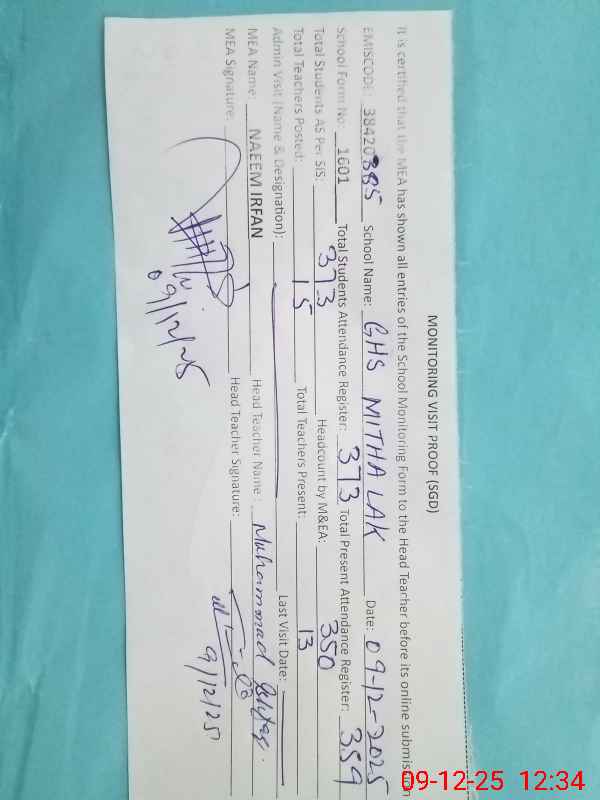 MONITORING VISIT PROOF (SGD)
It is certified that the MEA has shown all entries of the School Monitoring Form to the Head Teacher before its online submission
EMISCODE: 38420385 School Name: GHS MITHA LAK Date: 09-12-2025
School Form No: 1601 Total Students Attendance Register: 373 Total Present Attendance Register: 359
Total Students AS Per SIS: 373 Headcount by M&EA: 350
Total Teachers Posted: 15 Total Teachers Present: 13
Admin Visit (Name & Designation): Last Visit Date:
MEA Name: NAEEM IRFAN Head Teacher Name: Muhammad
MEA Signature: Head Teacher Signature:
09/12/25 9/12/25
09-12-25 12:34